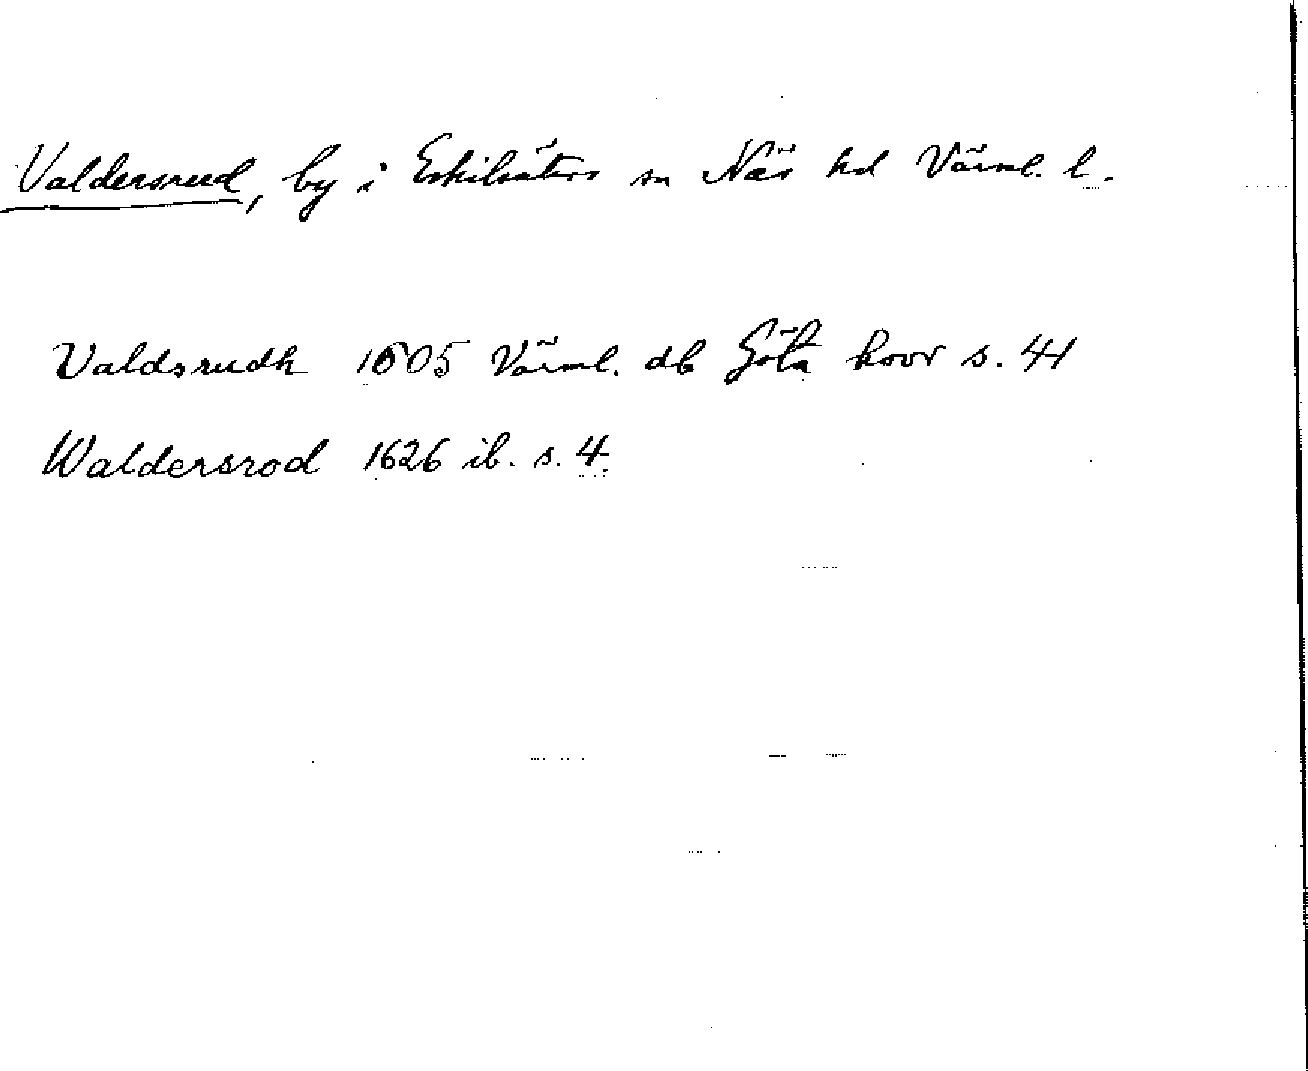 Valdersrud, by i Eskilsäters sn Näs hd Värml. l.
Valdsrudh 1605 Värml. db Göta hovr s. 41
Waldersrod 1626 ib. s. 4.